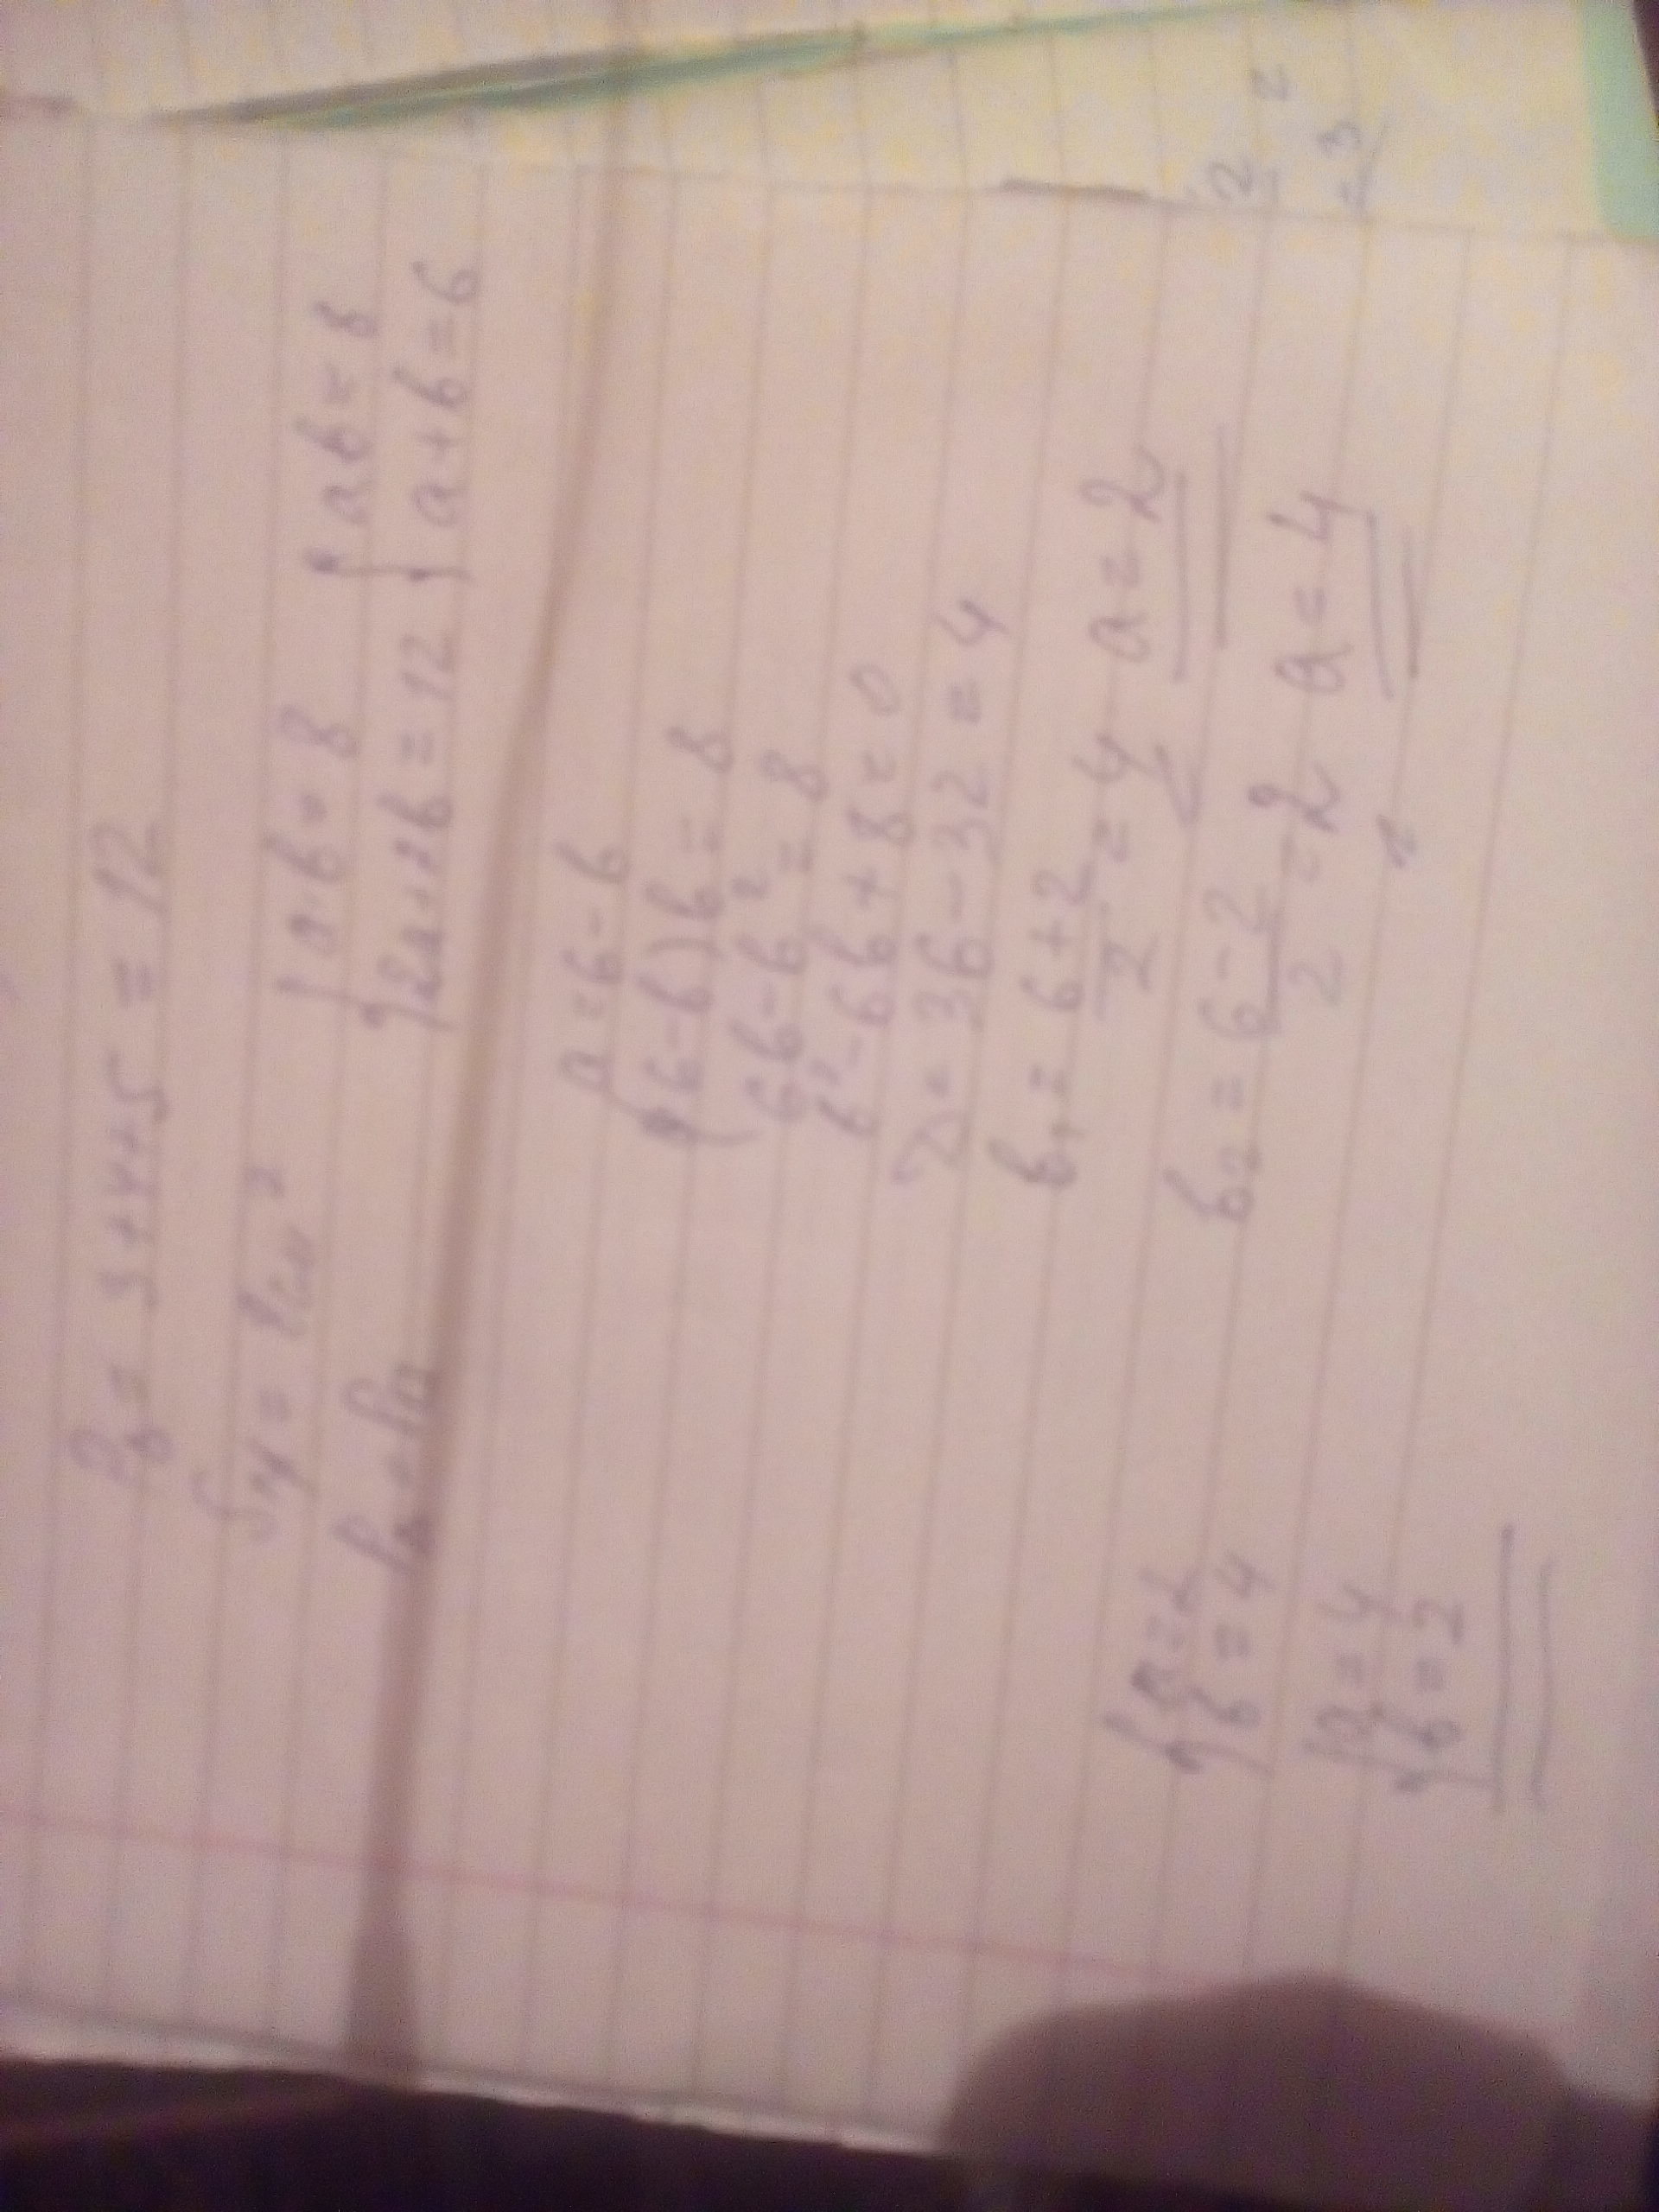 P_Δ = 3+4+5 = 12
S = 8 см²
{ a·b = 8
{ 2a+2b = 12
{ ab = 8
{ a+b = 6
a = 6-b
(6-b)b = 8
6b-b² = 8
b²-6b+8=0
D = 36-32 = 4
b₁ = (6+2)/2 = 4 a = 2
b₂ = (6-2)/2 = 2 a = 4
{ a=2
{ b=4
{ a=4
{ b=2